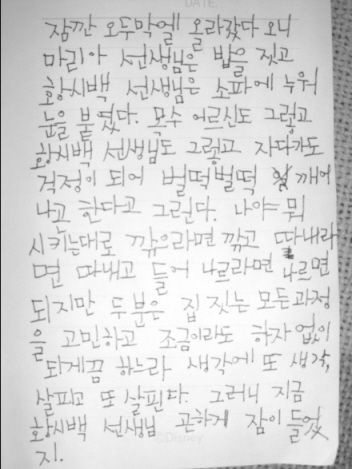 잠깐 오두막엘 올라갔다 오니
마리아 선생님은 밥을 짓고
황시백 선생님은 소파에 누워
눈을 붙였다. 목수 어르신도 그렇고
황시백 선생님도 그렇고 자다가도
걱정이 되어 벌떡벌떡 깨어
나곤 한다고 그런다. 나야 뭐
시키는대로 깎으라면 깎고 따내라
면 따내고 들어 나르라면 나르면
되지만 두 분은 집 짓는 모든 과정
을 고민하고 조금이라도 하자 없이
되게끔 하느라 생각에 또 생각,
살피고 또 살핀다. 그러니 지금
황시백 선생님 곤하게 잠이 들었
지.
©Disney
DATE.